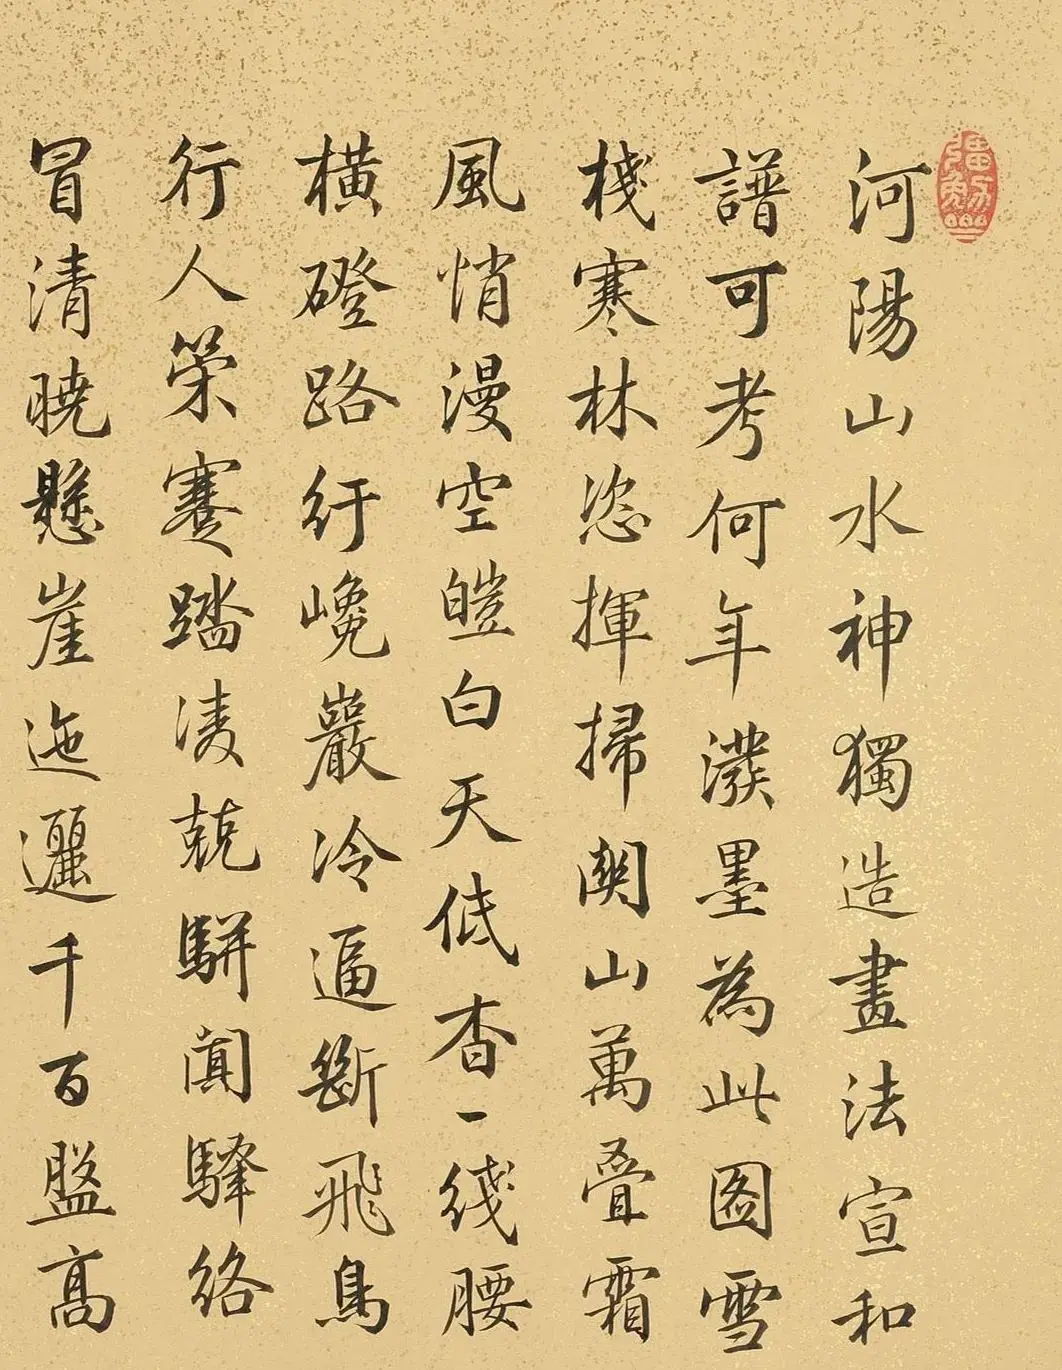 河陽山水神獨造畫法宣和
譜可考何年潑墨為此圖雪
棧寒林恣揮掃關山萬疊霜
風悄漫空皚白天低杳一綫腰
橫磴路紆巉巖冷逼斷飛鳥
行人策蹇踏凌兢駢闐驛絡
冒清曉懸崖迤邐千百盤高